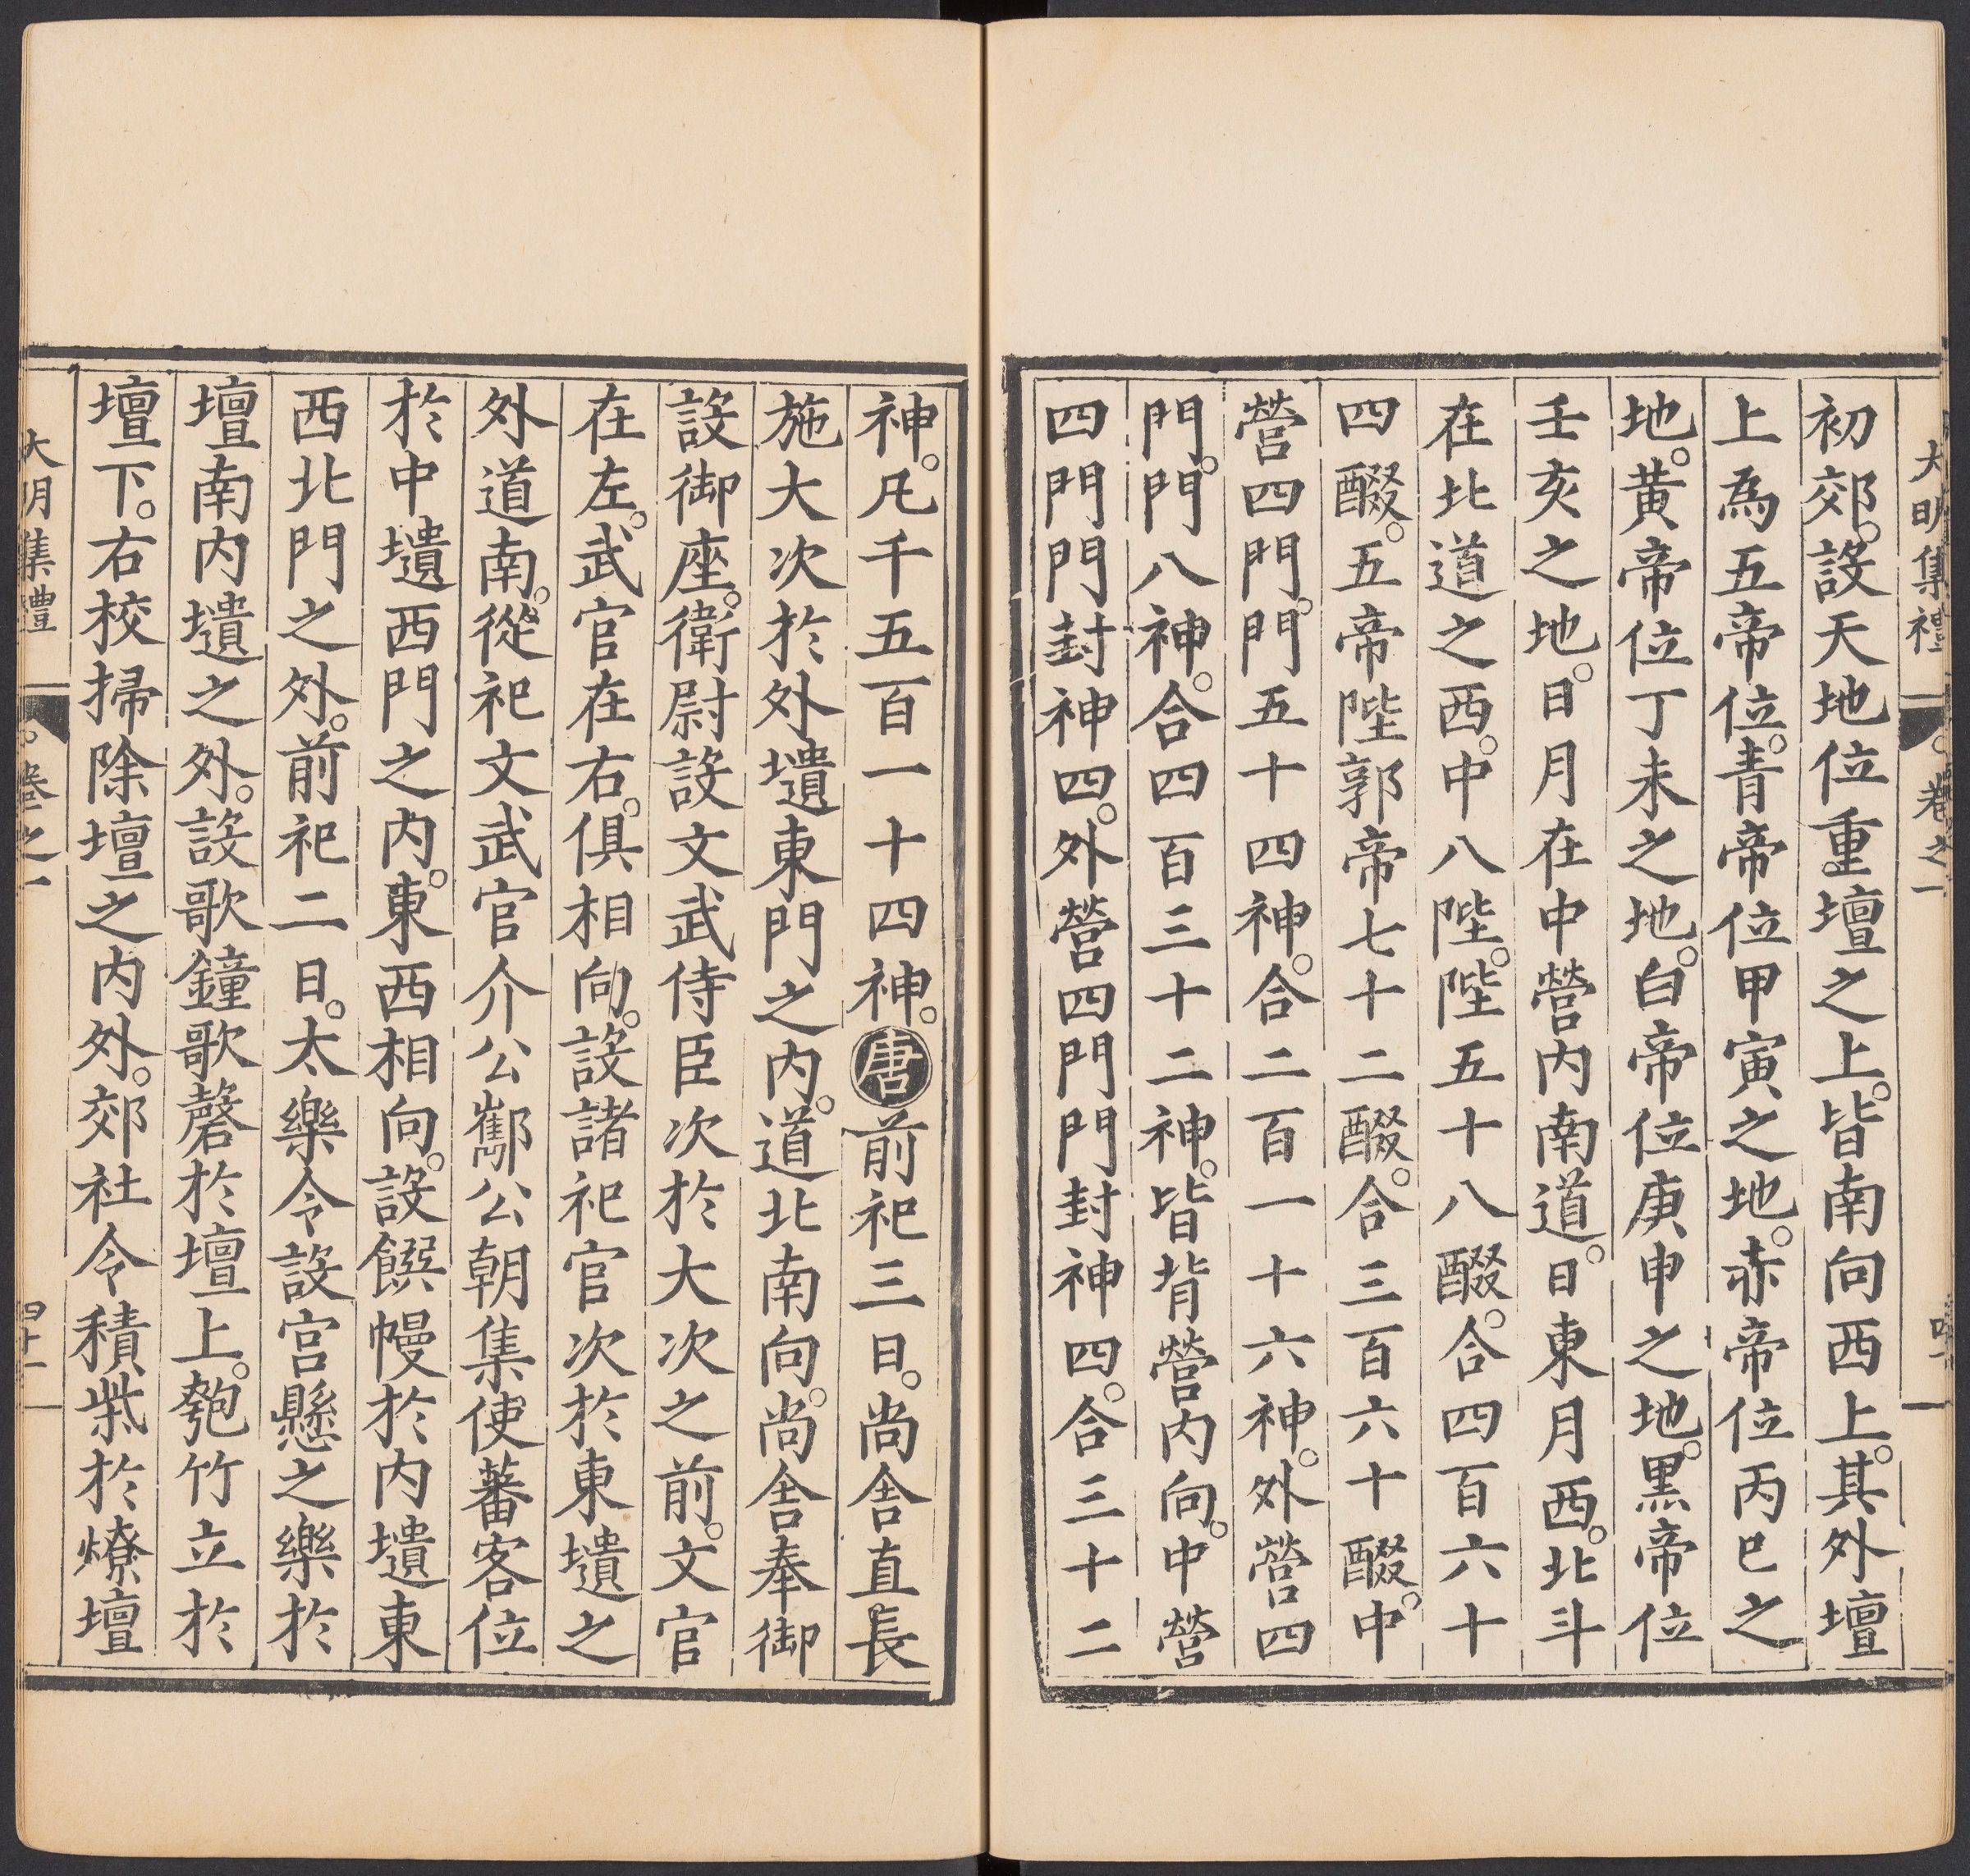 大明集禮 卷之一
初郊。設天地位重壇之上。皆南向西上。其外壇
上為五帝位。青帝位甲寅之地。赤帝位丙巳之
地。黃帝位丁未之地。白帝位庚申之地。黑帝位
壬亥之地。日月在中營內南道。日東月西。北斗
在北道之西。中八陛。陛五十八醊。合四百六十
四醊。五帝陛郭帝七十二醊。合三百六十醊。中
營四門。門五十四神。合二百一十六神。外營四
門。門八神。合四百三十二神。皆背營內向。中營
四門門封神四。外營四門門封神四。合三十二
神。凡千五百一十四神。唐前祀三日。尚舍直長
施大次於外壝東門之內。道北南向。尚舍奉御
設御座。衛尉設文武侍臣次於大次之前。文官
在左。武官在右。俱相向。設諸祀官次於東壝之
外道南。從祀文武官介公酅公朝集使蕃客位
於中壝西門之內。東西相向。設饌幔於內壝東
西北門之外。前祀二日。太樂令設宮懸之樂於
壇南內壝之外。設歌鐘歌磬於壇上。匏竹立於
壇下。右校掃除壇之內外。郊社令積柴於燎壇
大明集禮 卷之一 四十一